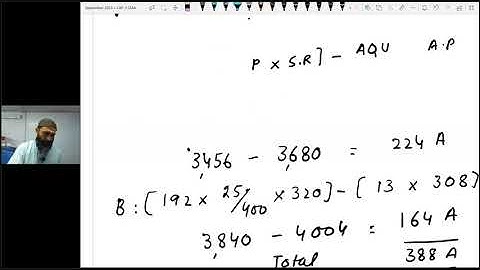 P x S.R] - AQU A.P
3456 - 3680 = 224 A
B : [192 x 25/400 x 320] - [13 x 308]
3,840 - 4004 = 164 A
Total 388 A